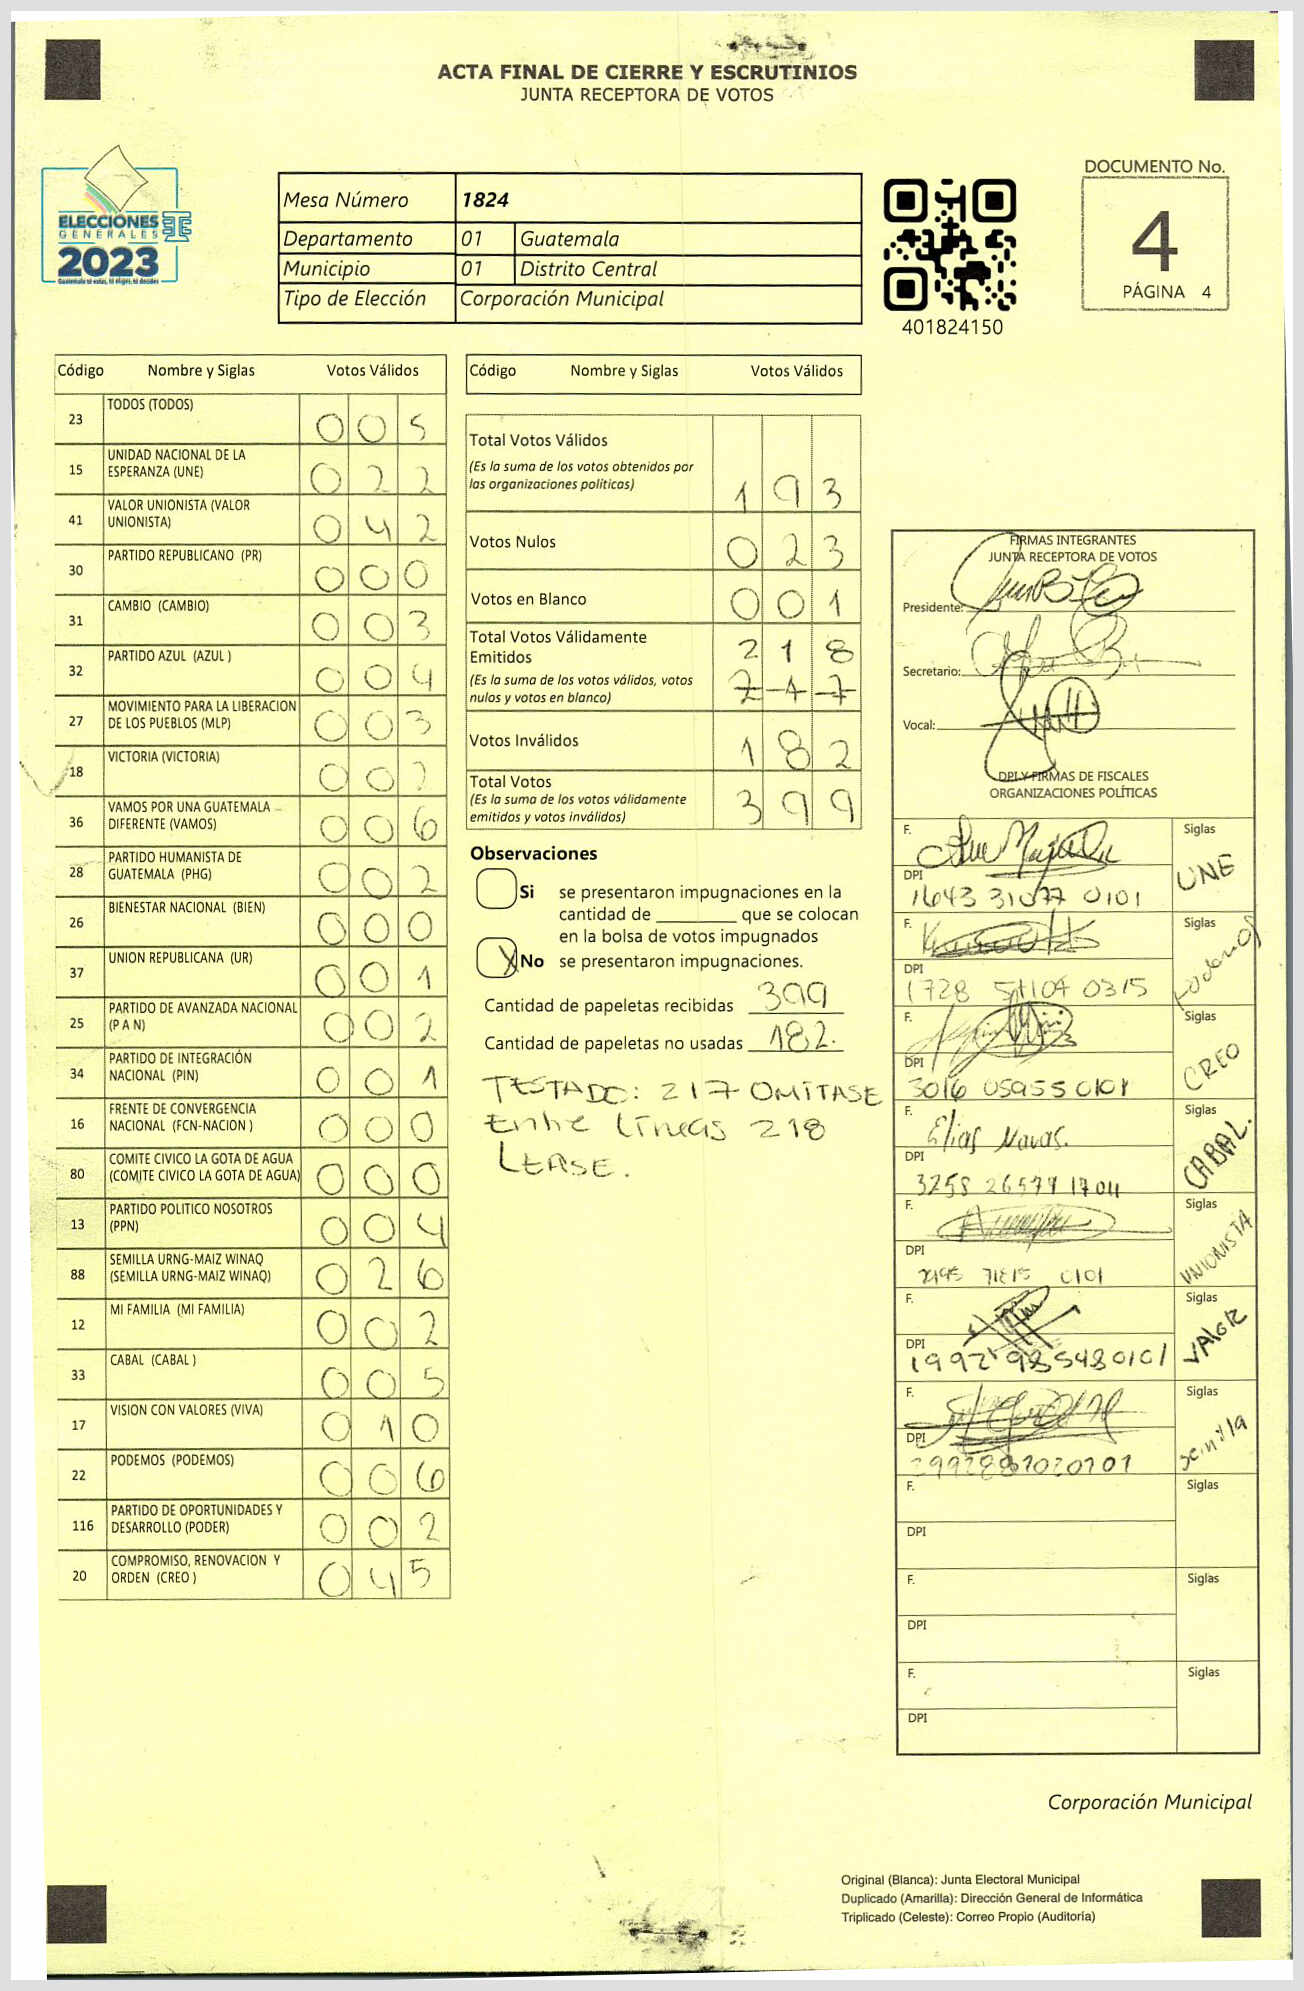 ACTA FINAL DE CIERRE Y ESCRUTINIOS
JUNTA RECEPTORA DE VOTOS
ELECCIONES
GENERALES
2023
Guatemala tú estas, tú eliges, tú decides
Mesa Número 1824
Departamento 01 Guatemala
Municipio 01 Distrito Central
Tipo de Elección Corporación Municipal
401824150
DOCUMENTO No.
4
PÁGINA 4
Código Nombre y Siglas Votos Válidos
23 TODOS (TODOS) 0 0 5
15 UNIDAD NACIONAL DE LA ESPERANZA (UNE) 0 2 2
41 VALOR UNIONISTA (VALOR UNIONISTA) 0 4 2
30 PARTIDO REPUBLICANO (PR) 0 0 0
31 CAMBIO (CAMBIO) 0 0 3
32 PARTIDO AZUL (AZUL ) 0 0 4
27 MOVIMIENTO PARA LA LIBERACION DE LOS PUEBLOS (MLP) 0 0 3
18 VICTORIA (VICTORIA) 0 0
36 VAMOS POR UNA GUATEMALA DIFERENTE (VAMOS) 0 0 6
28 PARTIDO HUMANISTA DE GUATEMALA (PHG) 0 0 2
26 BIENESTAR NACIONAL (BIEN) 0 0 0
37 UNION REPUBLICANA (UR) 0 0 1
25 PARTIDO DE AVANZADA NACIONAL (P A N) 0 0 2
34 PARTIDO DE INTEGRACIÓN NACIONAL (PIN) 0 0 1
16 FRENTE DE CONVERGENCIA NACIONAL (FCN-NACION ) 0 0 0
80 COMITE CIVICO LA GOTA DE AGUA (COMITE CIVICO LA GOTA DE AGUA) 0 0 0
13 PARTIDO POLITICO NOSOTROS (PPN) 0 0 4
88 SEMILLA URNG-MAIZ WINAQ (SEMILLA URNG-MAIZ WINAQ) 0 2 6
12 MI FAMILIA (MI FAMILIA) 0 0 2
33 CABAL (CABAL ) 0 0 5
17 VISION CON VALORES (VIVA) 0 1 0
22 PODEMOS (PODEMOS) 0 0 6
116 PARTIDO DE OPORTUNIDADES Y DESARROLLO (PODER) 0 0 2
20 COMPROMISO, RENOVACION Y ORDEN (CREO ) 0 4 5
Código Nombre y Siglas Votos Válidos
Total Votos Válidos
(Es la suma de los votos obtenidos por
las organizaciones políticas) 1 9 3
Votos Nulos 0 2 3
Votos en Blanco 0 0 1
Total Votos Válidamente
Emitidos 2 1 8
(Es la suma de los votos válidos, votos
nulos y votos en blanco) 2 1 7
Votos Inválidos 1 8 2
Total Votos
(Es la suma de los votos válidamente
emitidos y votos inválidos) 3 9 9
Observaciones
Si se presentaron impugnaciones en la
cantidad de ________ que se colocan
en la bolsa de votos impugnados
X No se presentaron impugnaciones.
Cantidad de papeletas recibidas 399
Cantidad de papeletas no usadas 182.
TESTADO: 217 OMITASE
Entre líneas 218
LEASE.
FIRMAS INTEGRANTES
JUNTA RECEPTORA DE VOTOS
Presidente:
Secretario:
Vocal:
DPI Y FIRMAS DE FISCALES
ORGANIZACIONES POLÍTICAS
F. Siglas UNE
DPI 1643 31077 0101
F. Siglas
DPI 1728 0315
F. Siglas CREO
DPI 3016 05955 0101
F. Elias Navas. Siglas CABAL.
DPI 3258 26577 1704
F. Siglas UNIONISTA
DPI 0101
F. Siglas VALOR
DPI 1992 98548 0101
F. Siglas semilla
DPI
F. Siglas
DPI
F. Siglas
DPI
F. Siglas
DPI
Corporación Municipal
Original (Blanca): Junta Electoral Municipal
Duplicado (Amarilla): Dirección General de Informática
Triplicado (Celeste): Correo Propio (Auditoría)